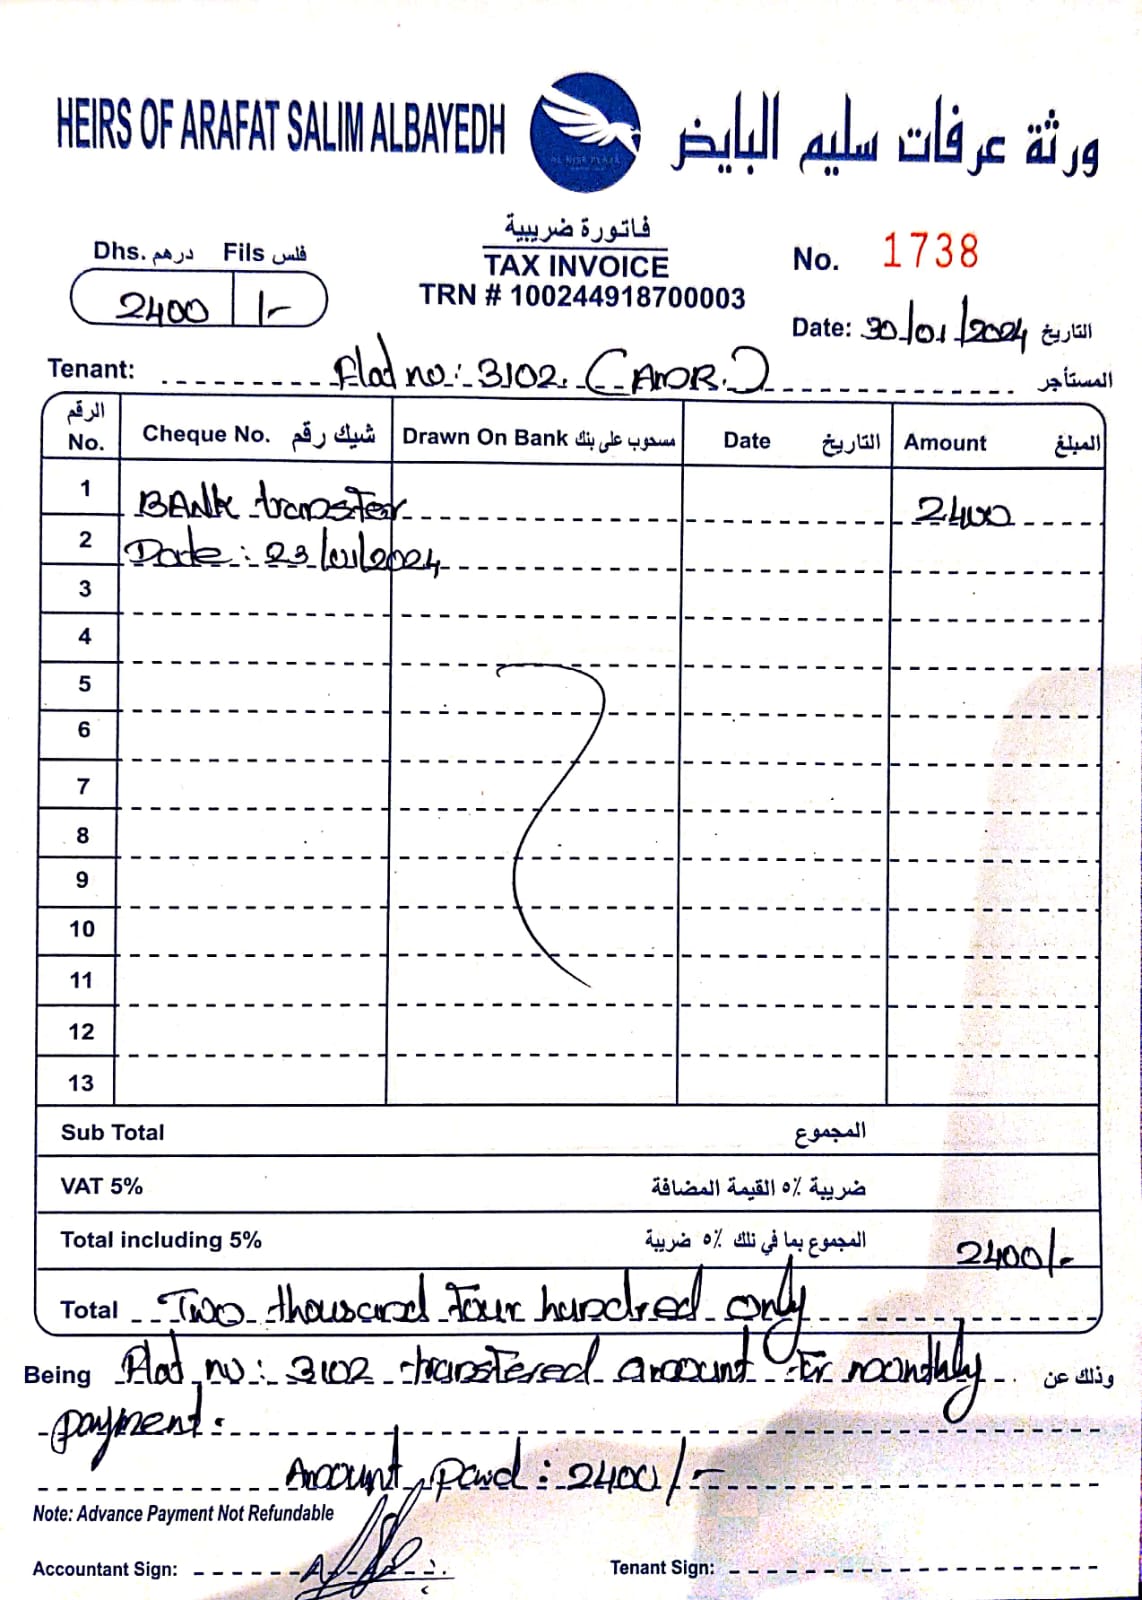 HEIRS OF ARAFAT SALIM ALBAYEDH
ورثة عرفات سليم البايض
AL NISR PLAZA
فاتورة ضريبية
TAX INVOICE
TRN # 100244918700003
Dhs. درهم Fils فلس
2400 /-
No. 1738
Date: 30/01/2024 التاريخ
Tenant: Flat no: 3102. (AMR.) المستأجر
الرقم No. Cheque No. شيك رقم Drawn On Bank مسحوب على بنك Date التاريخ Amount المبلغ
1 BANK transfer 2400
2 Date: 23/01/2024
3
4
5
6
7
8
9
10
11
12
13
Sub Total المجموع
VAT 5% ضريبة ٥٪ القيمة المضافة
Total including 5% المجموع بما في ذلك ٥٪ ضريبة 2400/-
Total Two thousand four hundred only
Being Flat no: 3102 transfered amount for monthly وذلك عن
payment.
Amount paid: 2400/-
Note: Advance Payment Not Refundable
Accountant Sign:
Tenant Sign: